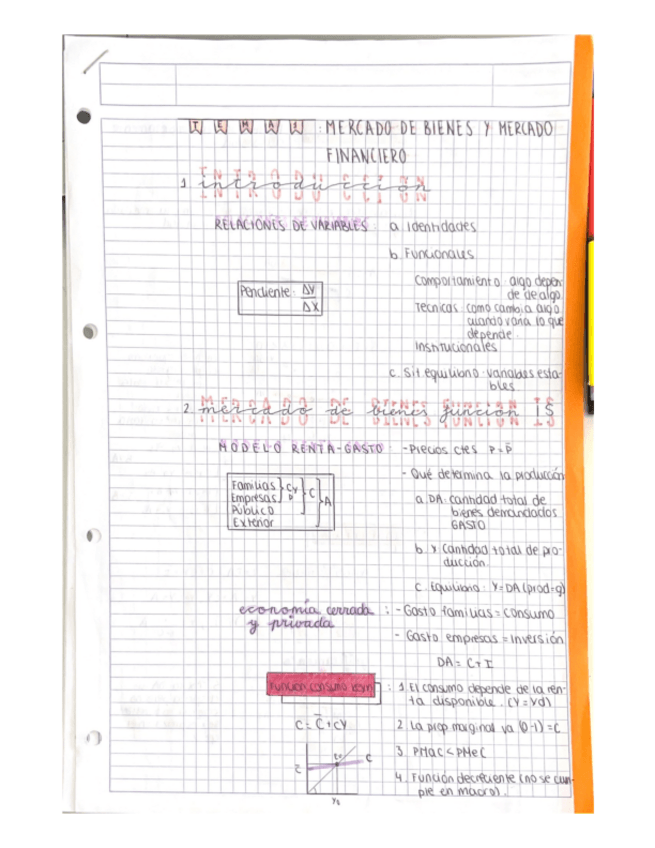 TEMA 1: MERCADO DE BIENES Y MERCADO
FINANCIERO
1 introducción
INTRODUCCION
RELACIONES DE VARIABLES: a. Identidades
b. Funcionales
Pendiente: ΔY
ΔX
Comportamiento: algo depen-
de de algo
Técnicas: como cambia algo
cuando varía lo que
depende
Institucionales
c. Sit equilibrio: variables esta-
bles
2. mercado de bienes función IS
MERCADO DE BIENES FUNCION IS
MODELO RENTA-GASTO: - Precios ctes P = P̄
- Qué determina la producción
Familias
Empresas
Público
Exterior
C
A
a. DA: cantidad total de
bienes demandados
GASTO
b. Y cantidad total de pro-
ducción
c. Equilibrio: Y=DA (prod=g)
economía cerrada
y privada
: - Gasto familias = consumo
- Gasto empresas = inversión
DA = C + I
Función consumo keyn
: 1 El consumo depende de la ren-
ta disponible. (Y = Yd)
C = C̄ + cY
2 La prop marginal va (0-1) = C
3 PMaC < PMeC
4. Función decreciente (no se cum-
ple en macro).
C̄
C
Y₀